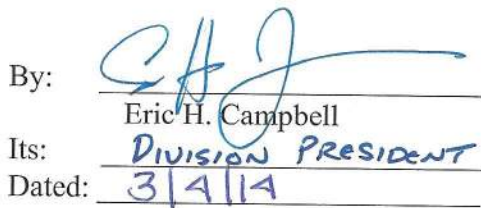 By:
Eric H. Campbell
Its: DIVISION PRESIDENT
Dated: 3/4/14